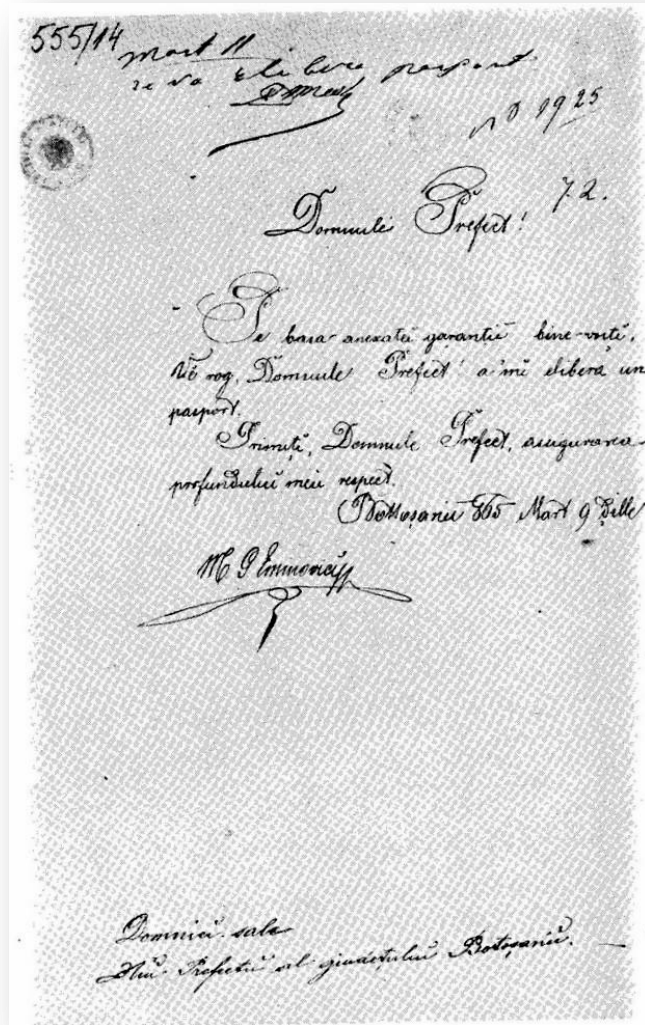 555/14
Mart 11
se va elibera pasport
No 1925
72.
Domnule Prefect!
Pe basa anexatei garantiĭ bine-voiți,
Vĕ rog, Domnule Prefect! a 'mĭ eliberá un
pasport.
Primiți, Domnule Prefect, asigurarea
profunduluĭ meŭ respect.
Bottoșaniĭ 865 Mart 9 dille
M P Emmovicĭ
Domnieĭ sale
Dluĭ Prefectŭ al giudețuluĭ Botoșaniĭ.